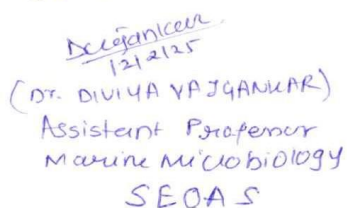 12/2/25
(Dr. DIVIYA VAJGANKAR)
Assistant Professor
Marine Microbiology
SEOAS